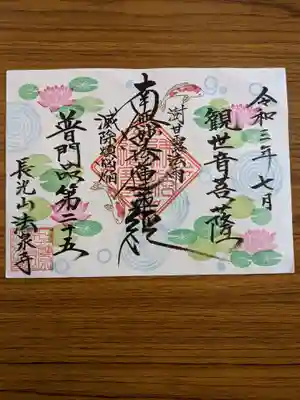 令和三年 七月
観世音菩薩
澍甘露法雨
南無妙法蓮華経
滅除煩悩焔
普門品第二十五
長光山 法泉寺